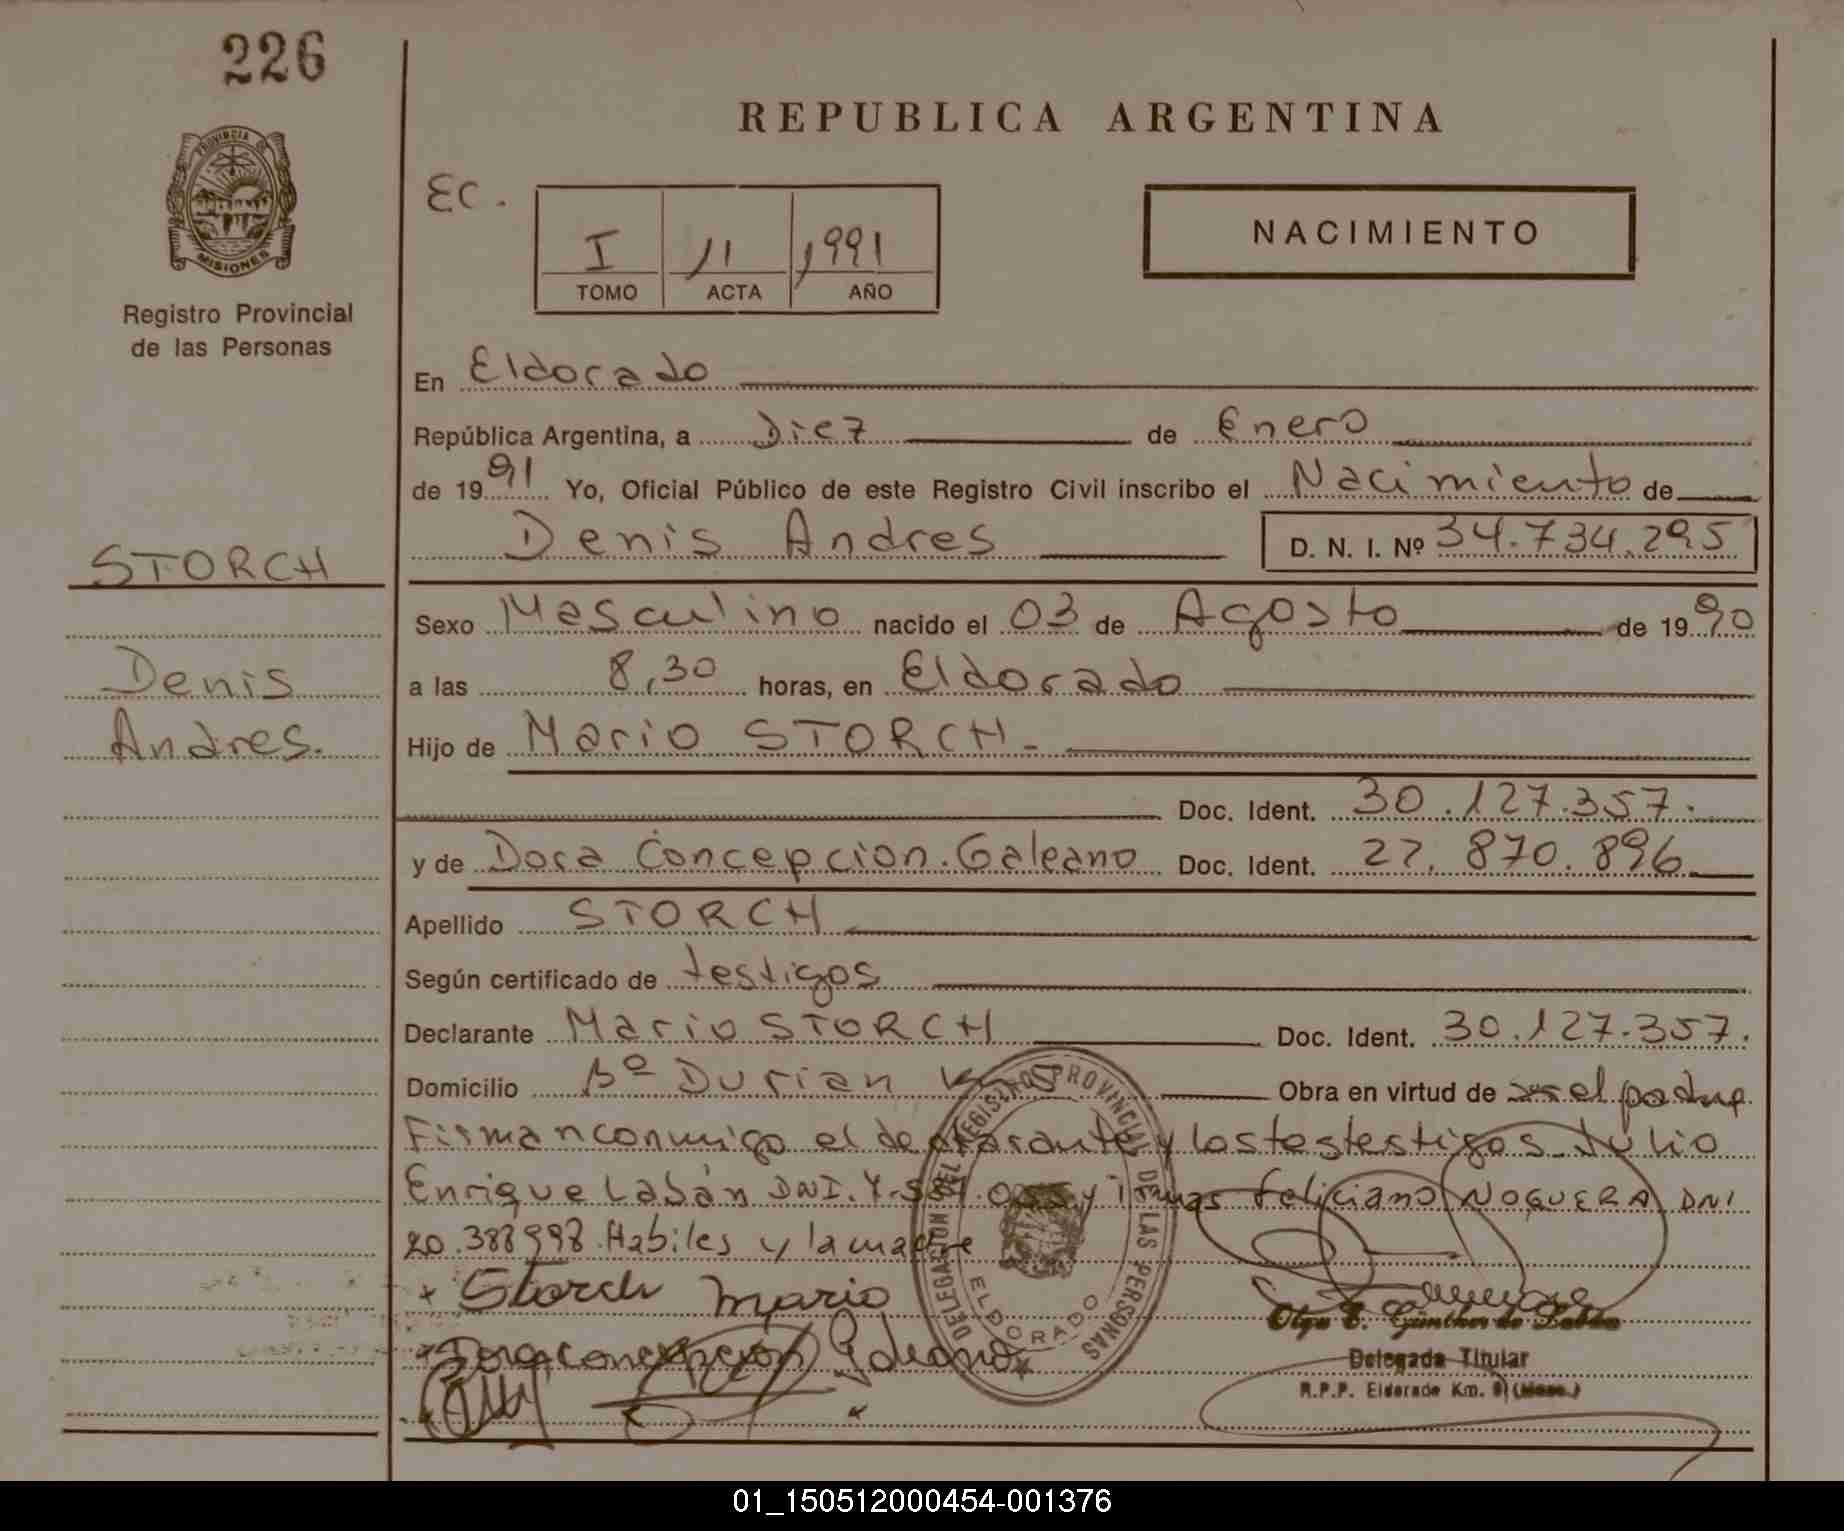 226
REPUBLICA ARGENTINA
PROVINCIA DE
MISIONES
Registro Provincial
de las Personas
EC.
I 11 1991
TOMO ACTA AÑO
NACIMIENTO
En Eldorado
República Argentina, a Diez de Enero
de 1991 Yo, Oficial Público de este Registro Civil inscribo el Nacimiento de
Denis Andres D. N. I. Nº 34.734.295
STORCH
Denis
Andres.
Sexo Masculino nacido el 03 de Agosto de 1990
a las 8,30 horas, en Eldorado
Hijo de Mario STORCH -
Doc. Ident. 30.127.357.
y de Dora Concepcion Galeano Doc. Ident. 27.870.896
Apellido STORCH
Según certificado de testigos
Declarante Mario STORCH Doc. Ident. 30.127.357.
Domicilio Bº Durian Obra en virtud de el padre
Firman conmigo el declarante y los testestigos Julio
Enrique Labán DNI. Feliciano NOGUERA DNI
Habiles y la madre
+ Storch Mario
Dora concepcion Galeano
DELEGACION DEL REGISTRO PROVINCIAL DE LAS PERSONAS
ELDORADO
Olga E. Günther de
Delegada Titular
R.P.P. Eldorado Km. 9 (Mnes.)
01_150512000454-001376